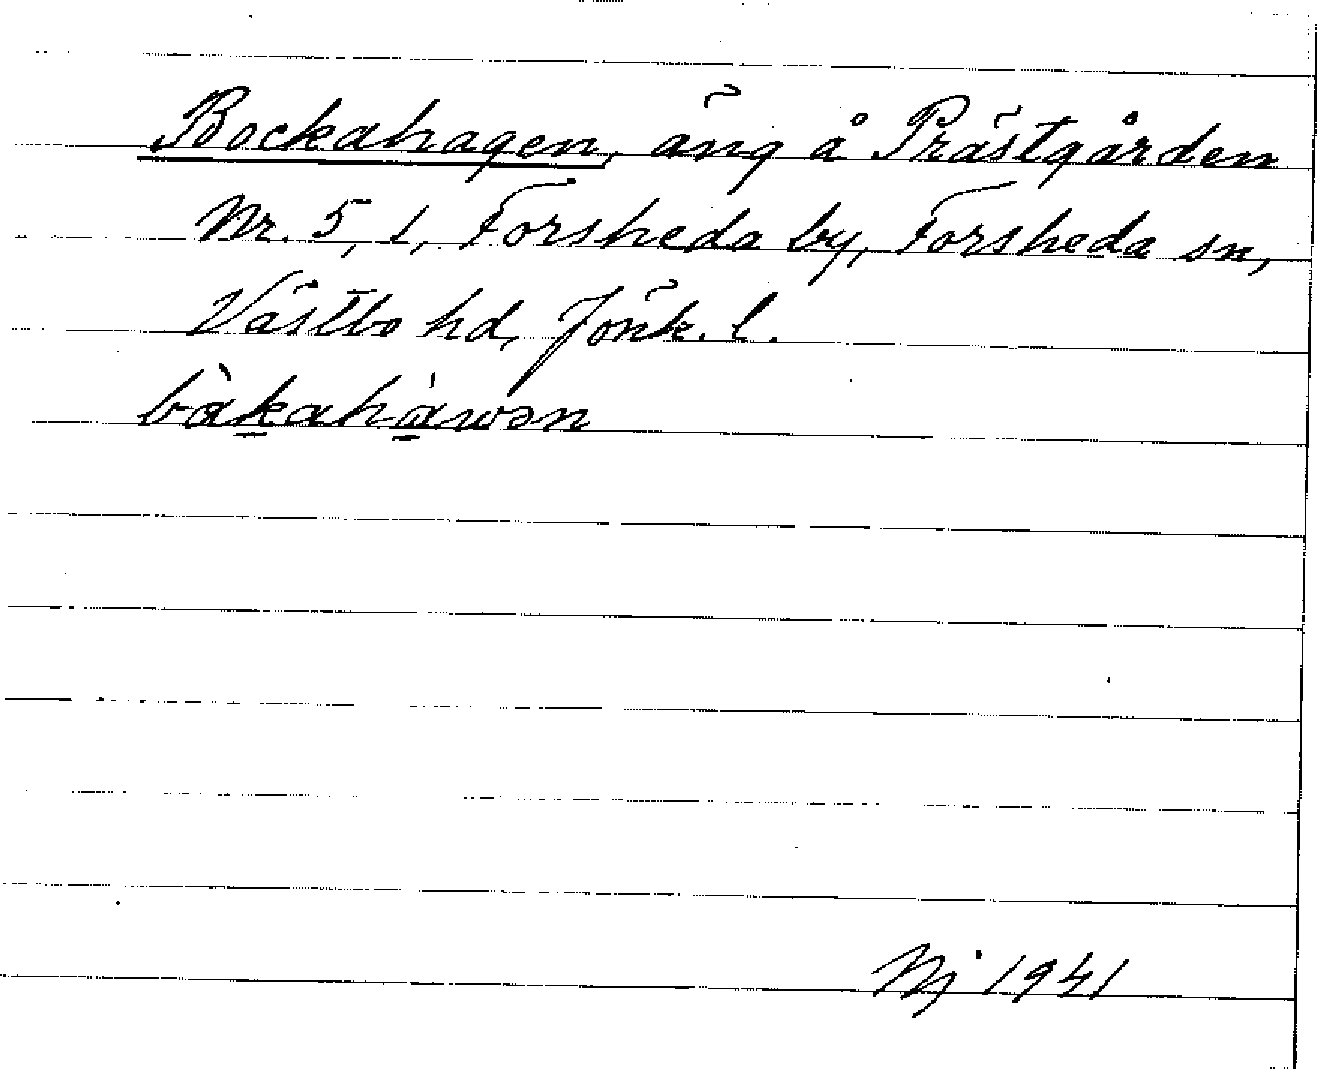 Bockahagen, äng å Prästgården
Nr. 5, 1, Forsheda by, Forsheda sn,
Västbo hd, Jönk. l.
bàkahàwən
Nj 1941